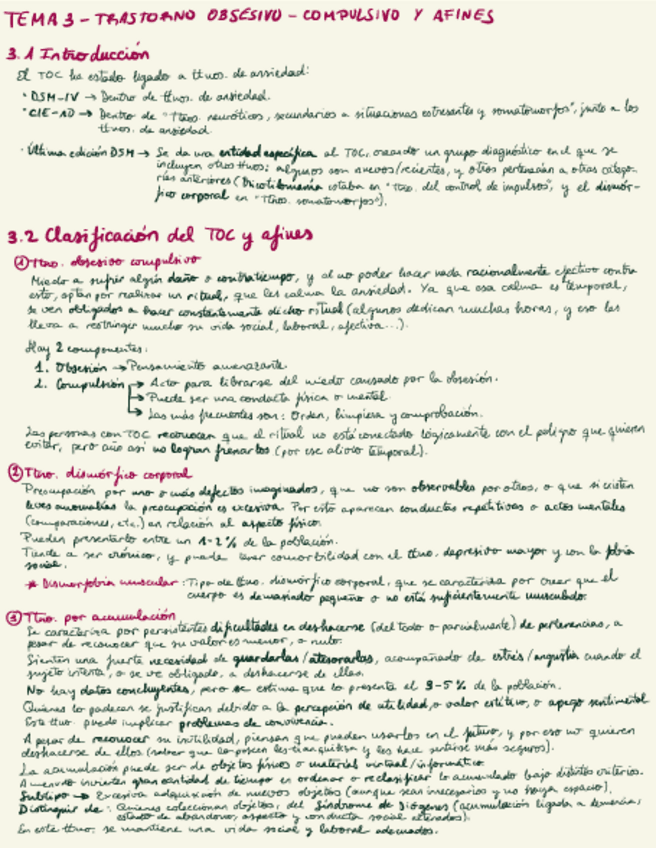 TEMA 3 - TRASTORNO OBSESIVO - COMPULSIVO Y AFINES
3.1 Introducción
El TOC ha estado ligado a ttnos. de ansiedad:
· DSM-IV → Dentro de ttnos. de ansiedad.
· CIE-10 → Dentro de "ttnos. neuróticos, secundarios a situaciones estresantes y somatomorfos", junto a los
ttnos. de ansiedad.
· Última edición DSM → Se da una entidad específica al TOC, creando un grupo diagnóstico en el que se
incluyen otros ttnos; algunos son nuevos/recientes, y otros pertenecían a otras catego-
rías anteriores (Tricotilomanía estaba en "ttno. del control de impulsos", y el dismór-
fico corporal en "ttnos. somatomorfos").
3.2 Clasificación del TOC y afines
① Ttno. obsesivo compulsivo
Miedo a sufrir algún daño o contratiempo, y al no poder hacer nada racionalmente efectivo contra
esto, optan por realizar un ritual, que les calma la ansiedad. Ya que esa calma es temporal,
se ven obligados a hacer constantemente dicho ritual (algunos dedican muchas horas, y eso les
lleva a restringir mucho su vida social, laboral, afectiva...).
Hay 2 componentes:
1. Obsesión → Pensamiento amenazante.
2. Compulsión → Acto para librarse del miedo causado por la obsesión.
→ Puede ser una conducta física o mental.
→ Las más frecuentes son: Orden, limpieza y comprobación.
Las personas con TOC reconocen que el ritual no está conectado lógicamente con el peligro que quieren
evitar, pero aún así no logran frenarlos (por ese alivio temporal).
② Ttno. dismórfico corporal
Preocupación por uno o más defectos imaginados, que no son observables por otros, o que si existen
leves anomalías la preocupación es excesiva. Por esto aparecen conductas repetitivas o actos mentales
(comparaciones, etc.) en relación al aspecto físico.
Pueden presentarlo entre un 1-2% de la población.
Tiende a ser crónico, y puede tener comorbilidad con el ttno. depresivo mayor y con la fobia
social.
* Dismorfobia muscular: Tipo de ttno. dismórfico corporal, que se caracteriza por creer que el
cuerpo es demasiado pequeño o no está suficientemente musculado.
③ Ttno. por acumulación
Se caracteriza por persistentes dificultades en deshacerse (del todo o parcialmente) de pertenencias, a
pesar de reconocer que su valor es menor, o nulo.
Sienten una fuerte necesidad de guardarlas/atesorarlas, acompañado de estrés/angustia cuando el
sujeto intenta, o se ve obligado, a deshacerse de ellas.
No hay datos concluyentes, pero se estima que lo presenta el 3-5% de la población.
Quienes lo padecen se justifican debido a la percepción de utilidad, o valor estético, o apego sentimental
Este ttno. puede implicar problemas de convivencia.
A pesar de reconocer su inutilidad, piensan que pueden usarlos en el futuro, y por eso no quieren
deshacerse de ellos (saber que lo poseen les tranquiliza y les hace sentirse más seguros).
La acumulación puede ser de objetos físicos o material virtual/informático.
A menudo invierten gran cantidad de tiempo en ordenar o reclasificar lo acumulado bajo distintos criterios.
Subtipo → Excesiva adquisición de nuevos objetos (aunque sean innecesarios y no haya espacio).
Distinguir de: Quienes coleccionan objetos, del Síndrome de Diógenes (acumulación ligada a demencia,
estado de abandono, aspecto y conducta social alterados).
En este ttno. se mantiene una vida social y laboral adecuados.